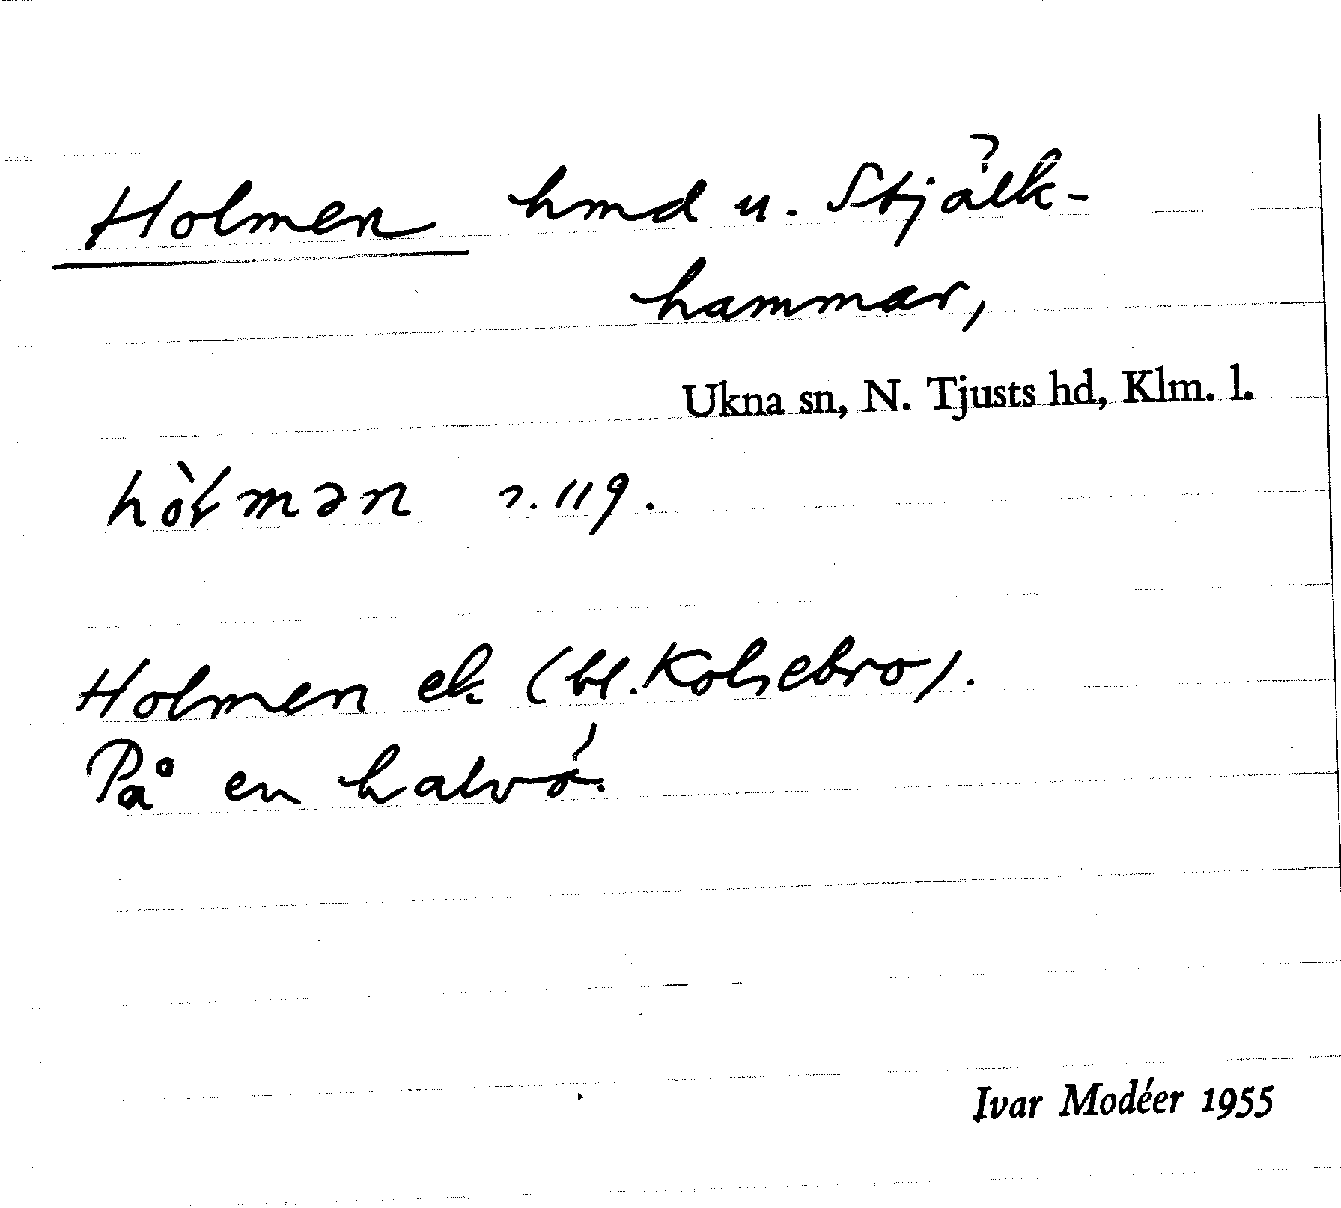 Holmen hmd u. Stjälk-
hammar,
Ukna sn, N. Tjusts hd, Klm. l.
hòƚmən r. 119.
Holmen ek (bl. Kolsebro).
På en halvö.
Ivar Modéer 1955